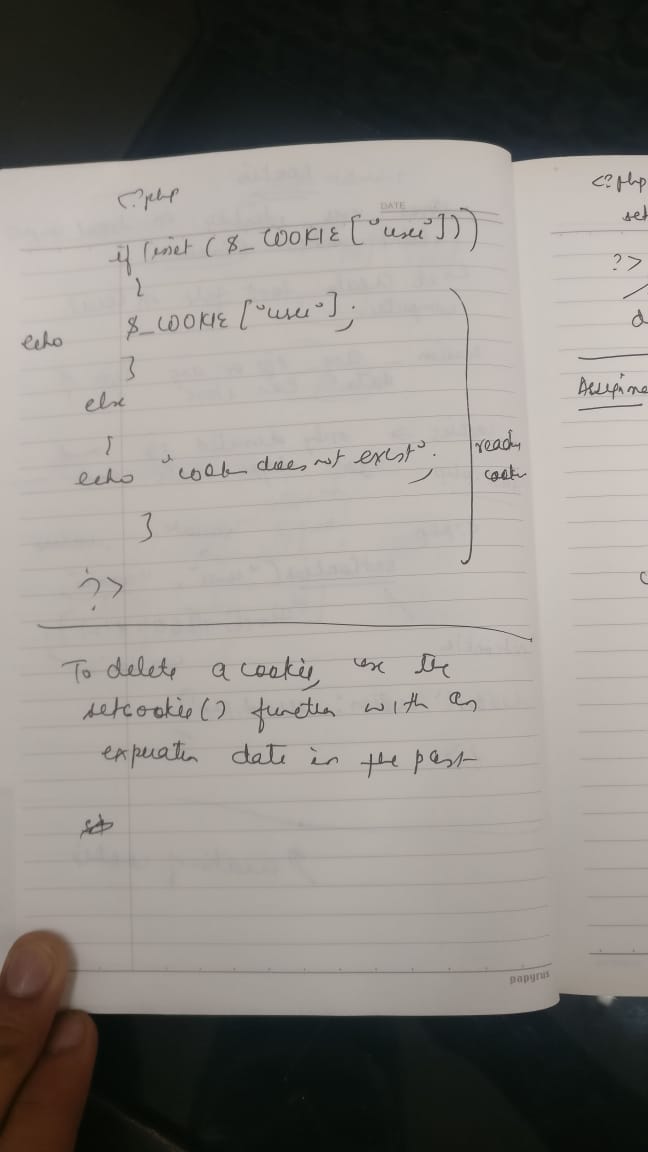 <?php
DATE
if (isset ($_COOKIE["user"]))
{
echo $_COOKIE["user"];
}
else
{
echo "cookie does not exist";
}
?>
ready
cooki
To delete a cookie, use the
setcookie() function with an
expiration date in the past
papyrus
<?php
set
?>
d
Assignme